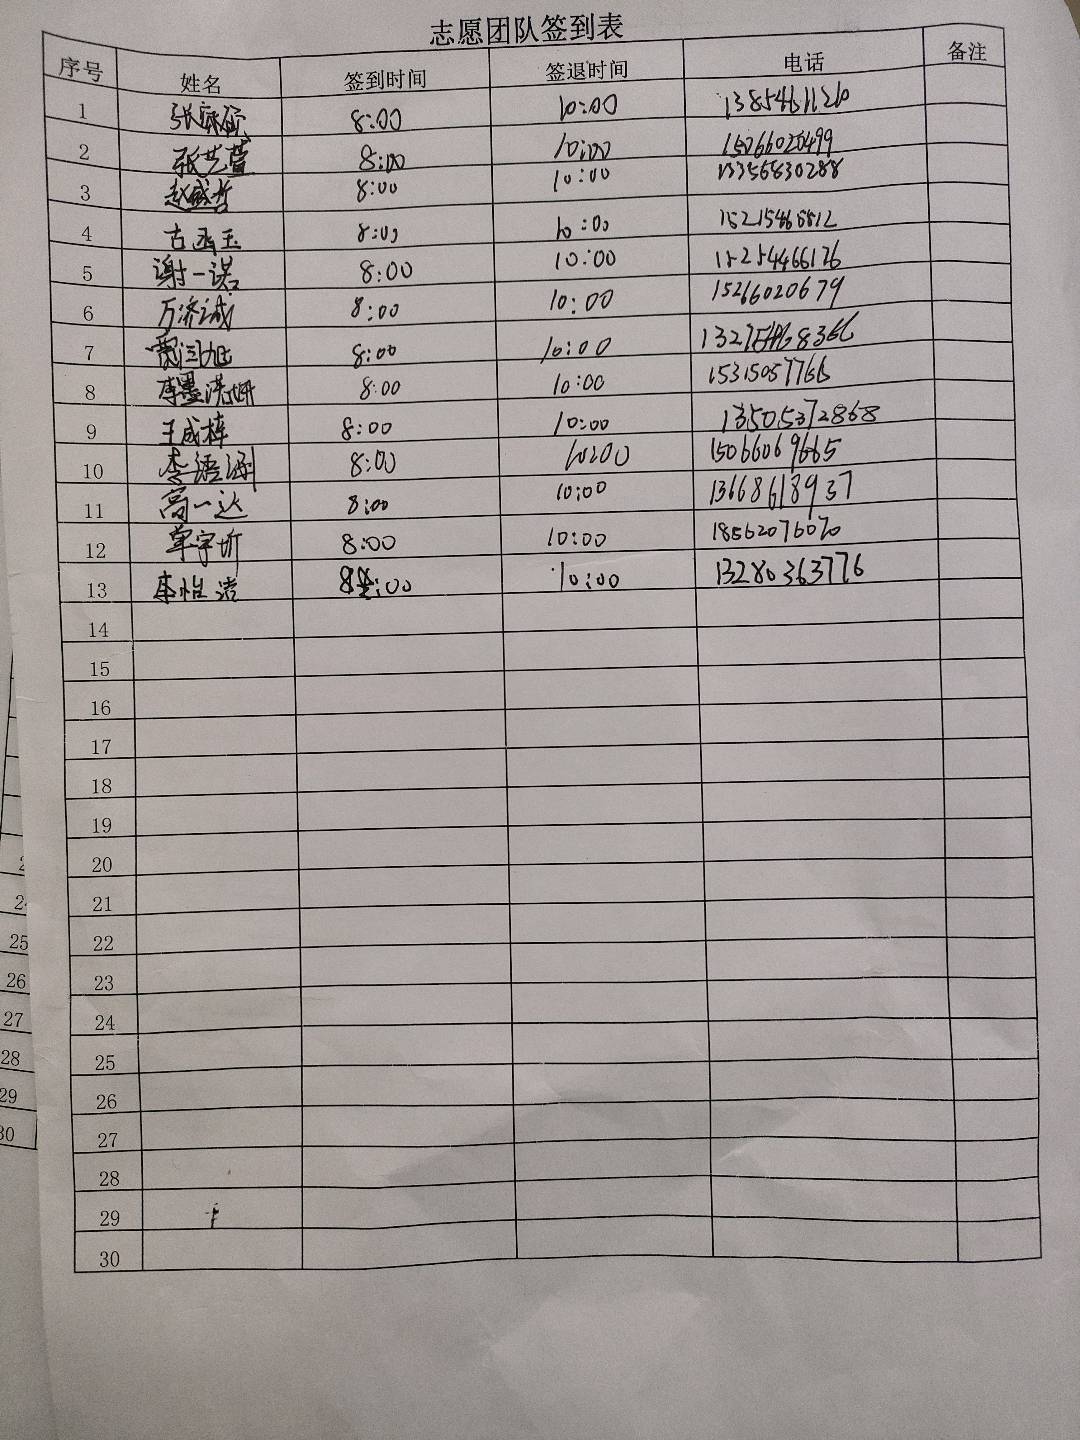 志愿团队签到表
序号 姓名 签到时间 签退时间 电话 备注
1 8:00 10:00 13854611260
2 张艺萱 8:00 10:00 15066020499
3 赵盛哲 8:00 10:00 13356830288
4 古函玉 8:00 10:00
5 谢一诺 8:00 10:00 15254466126
6 万济诚 8:00 10:00 15266020679
7 8:00 10:00
8 李墨涵妍 8:00 10:00 15315057766
9 王成栋 8:00 10:00 13505372868
10 李语涵 8:00 10:00 15066069665
11 高一达 8:00 10:00 13668618937
12 单宇昕 8:00 10:00 18562076070
13 李怡滢 8:00 10:00 13280363776
14
15
16
17
18
19
20
21
22
23
24
25
26
27
28
29
30
2
24
25
26
27
28
29
30